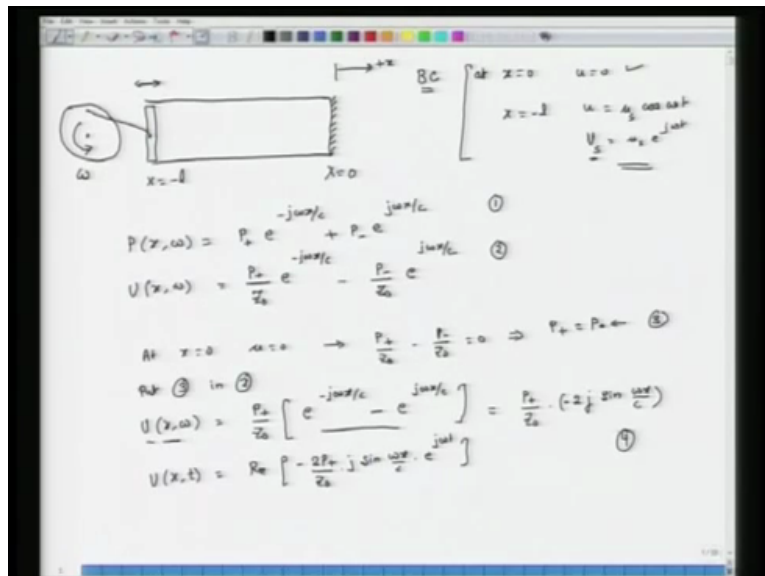 File Edit View Insert Actions Tools Help
+x
BC at x=0 u=0 ✓
x=-l u = u_s cos ωt
V_s = u_s e^{jωt}
ω x=-l x=0
P(x,ω) = P_+ e^{-jωx/c} + P_- e^{jωx/c} ①
U(x,ω) = P_+/Z_0 e^{-jωx/c} - P_-/Z_0 e^{jωx/c} ②
At x=0 u=0 → P_+/Z_0 - P_-/Z_0 = 0 ⇒ P_+ = P_- ← ③
Put ③ in ②
U(x,ω) = P_+/Z_0 [ e^{-jωx/c} - e^{jωx/c} ] = P_+/Z_0 · (-2j sin ωx/c)
U(x,t) = Re [ - 2P_+/Z_0 · j sin ωx/c · e^{jωt} ] ④